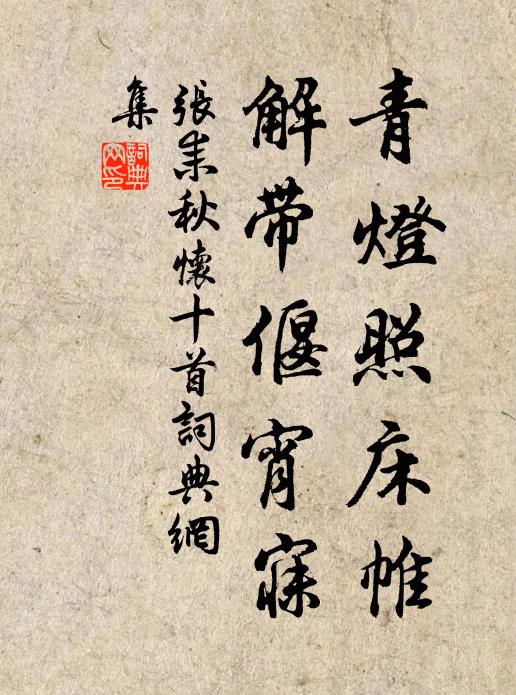 青燈照床帷
解帶偃宵寐
張耒秋懷十首詞典網
集
詞典
網印